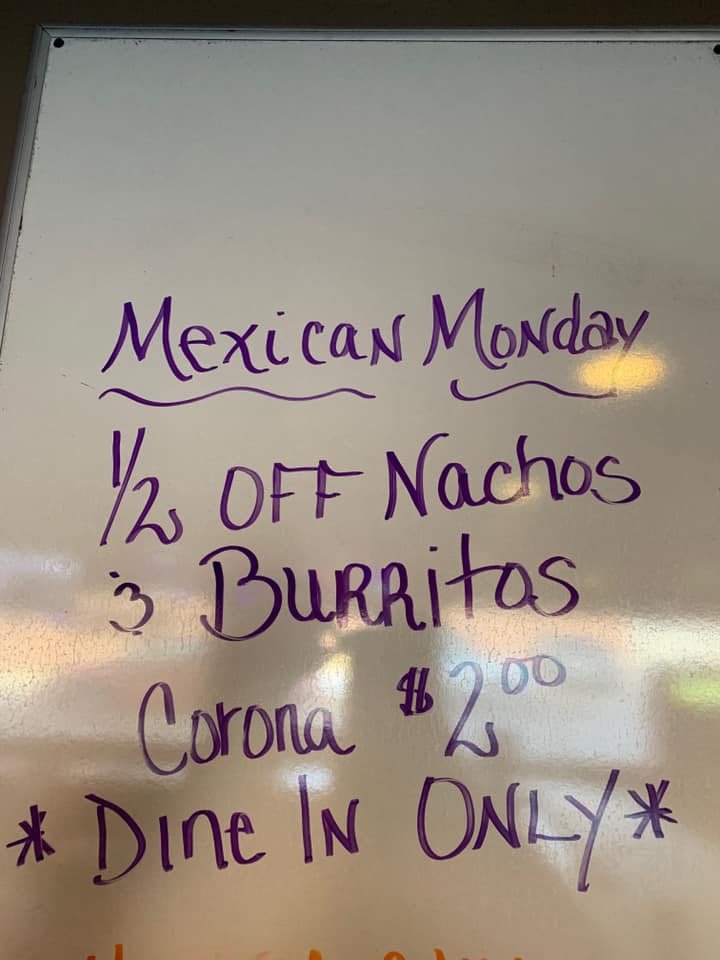 Mexican Monday
1/2 OFF Nachos
& Burritos
Corona $2.00
* Dine In ONLY *